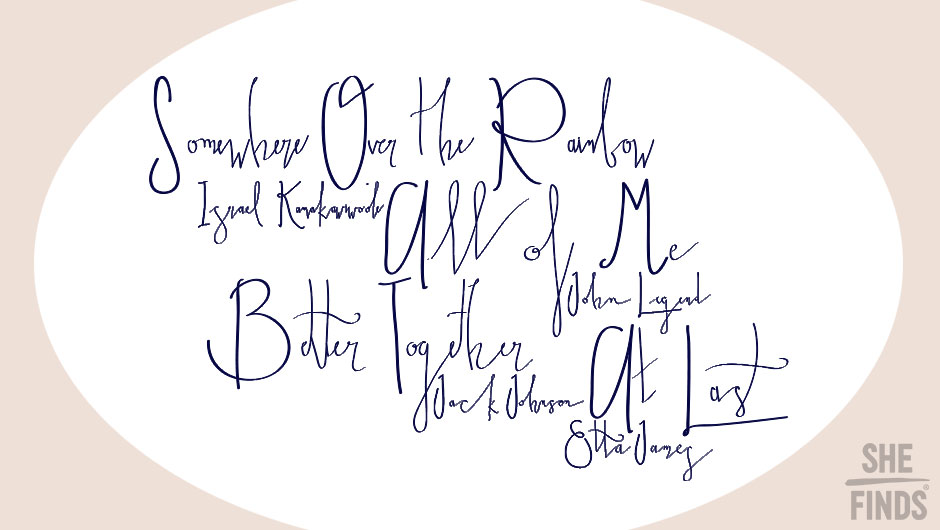 Somewhere Over The Rainbow
Israel
All of Me
John Legend
Better Together
Jack Johnson
At Last
Etta James
SHE
FINDS